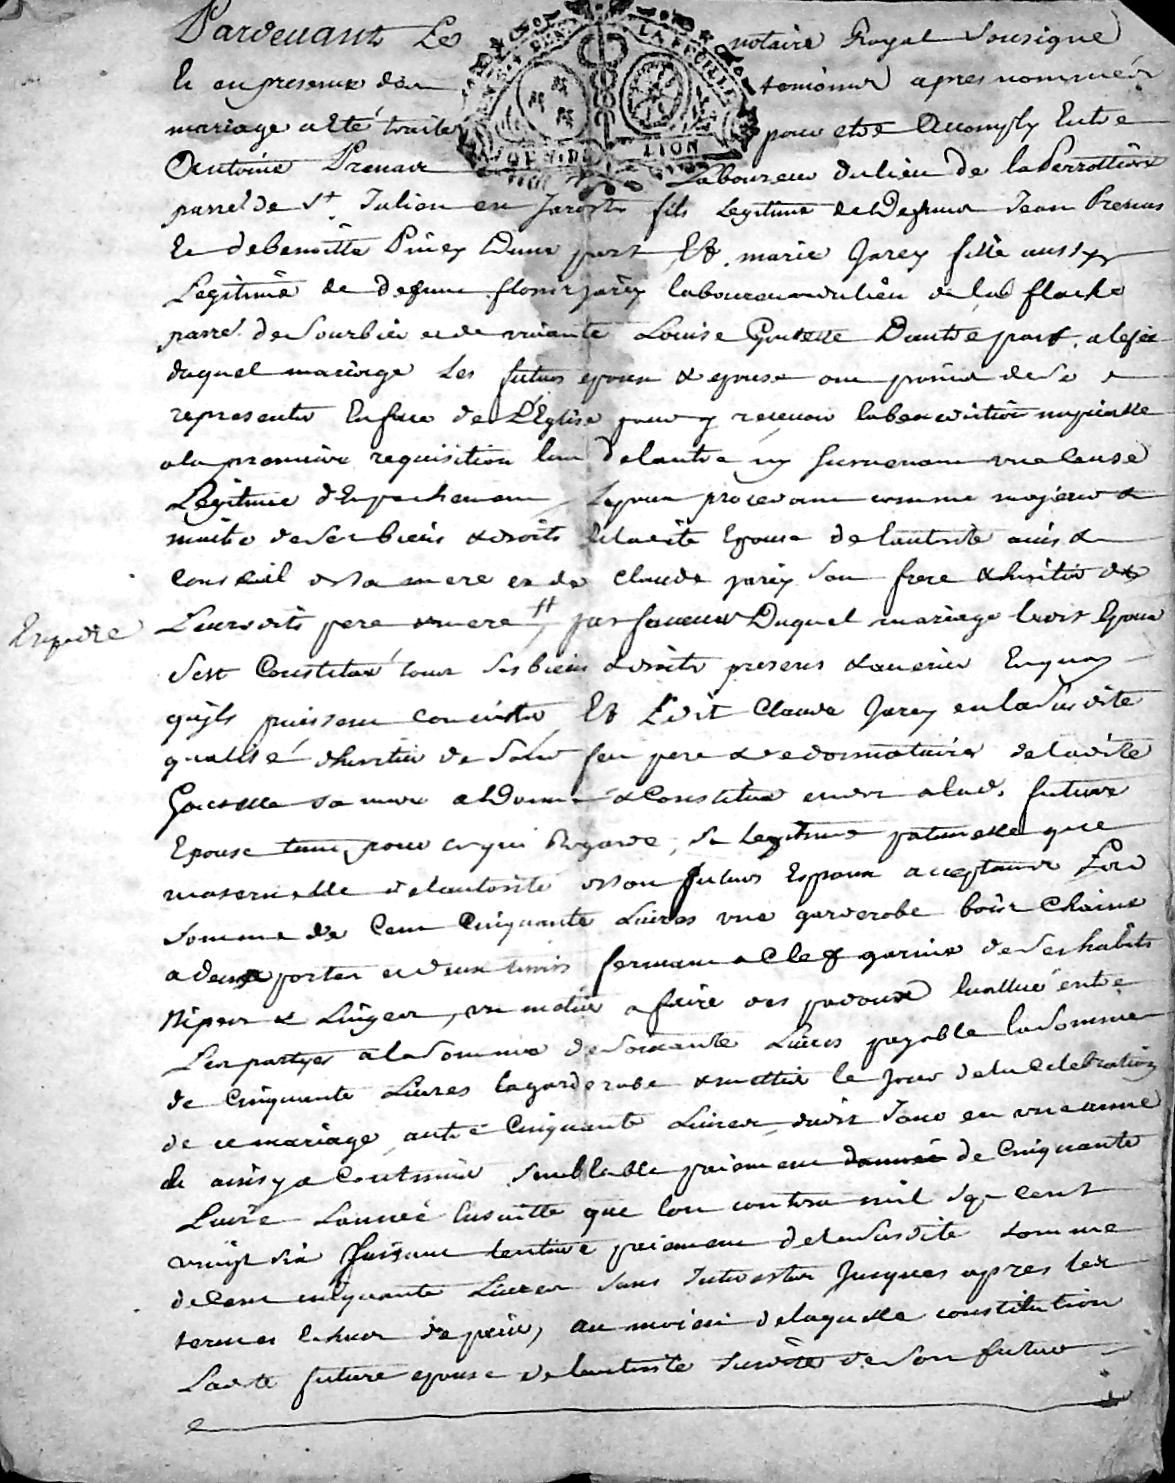 Pardevant Le notaire Royal Sousigné
Et en presence des temoins apres nommés
mariage a eté traité pour etre Accomply Entre
Antoine Prenat Laboureur du lieu de la Perrotiere
parr.e de St. Julien en Jarests fils Legitime de Defunt Jean Prenat
Et de benoitte Piney Dune part, Et marie Jarey fille aussy
Legitime de defunt jarey laboureur du lieu de la flache
parre. de Sourbier et de vivante Louise Dautre part, a leffet
duquel mariage Les futurs epoux & epouse ont promis de Se
representer En face de L'Eglise pour y recevoir la benediction nuptialle
a la premiere requisition lun de lautre ny survenant une Cause
Legitime dEmpechement, Lepoux procedant comme majeur &
maitre de Ses biens & droits Et ladite Epouse de lautorité avis &
Conseil de Sa mere et de Claude jarey Son frere & heritier de
Leursdits pere & mere, par faveur Duquel mariage ledit Epoux
Sest Constitué tous Ses biens & droits presens & avenir En quoy
quils puissent Consister Et Ledit Claude Jarey en la Susdite
qualité dheritier de Sond. feu pere & de donnataire de ladite
Sa mere a Donné & Constitué a lad. future
Epouse tant pour ce qui Regarde, Sa Legitime paternelle que
maternelle de lautorité de Son futur Espoux acceptante La
Somme de Cent Cinquante Livres une garderobe bois Chaine
a deux portes et deux tirois fermant a Clef garnie de Ses habits
Nipes & Linges, un metier a faire des padoux Evallué entre
Les partyes a la Somme de Soixante Livres payable la Somme
de Cinquante Livres la garderobe & mettier le jour de la Celebration
de ce mariage, autre Cinquante Livres dudit Jour en une année
& ainsy a Continuer Semblable paiement de Cinquante
Livre Lannée Ensuitte que lon contera mil Sept Cent
vingt Six faisant lentier paiement de la Susdite Somme
de Cent cinquante Livres Sans Interests Jusques apres les
termes Echus de paier, au moien de laquelle constitution
Ladte future epouse de lautorité Susdite de Son futur